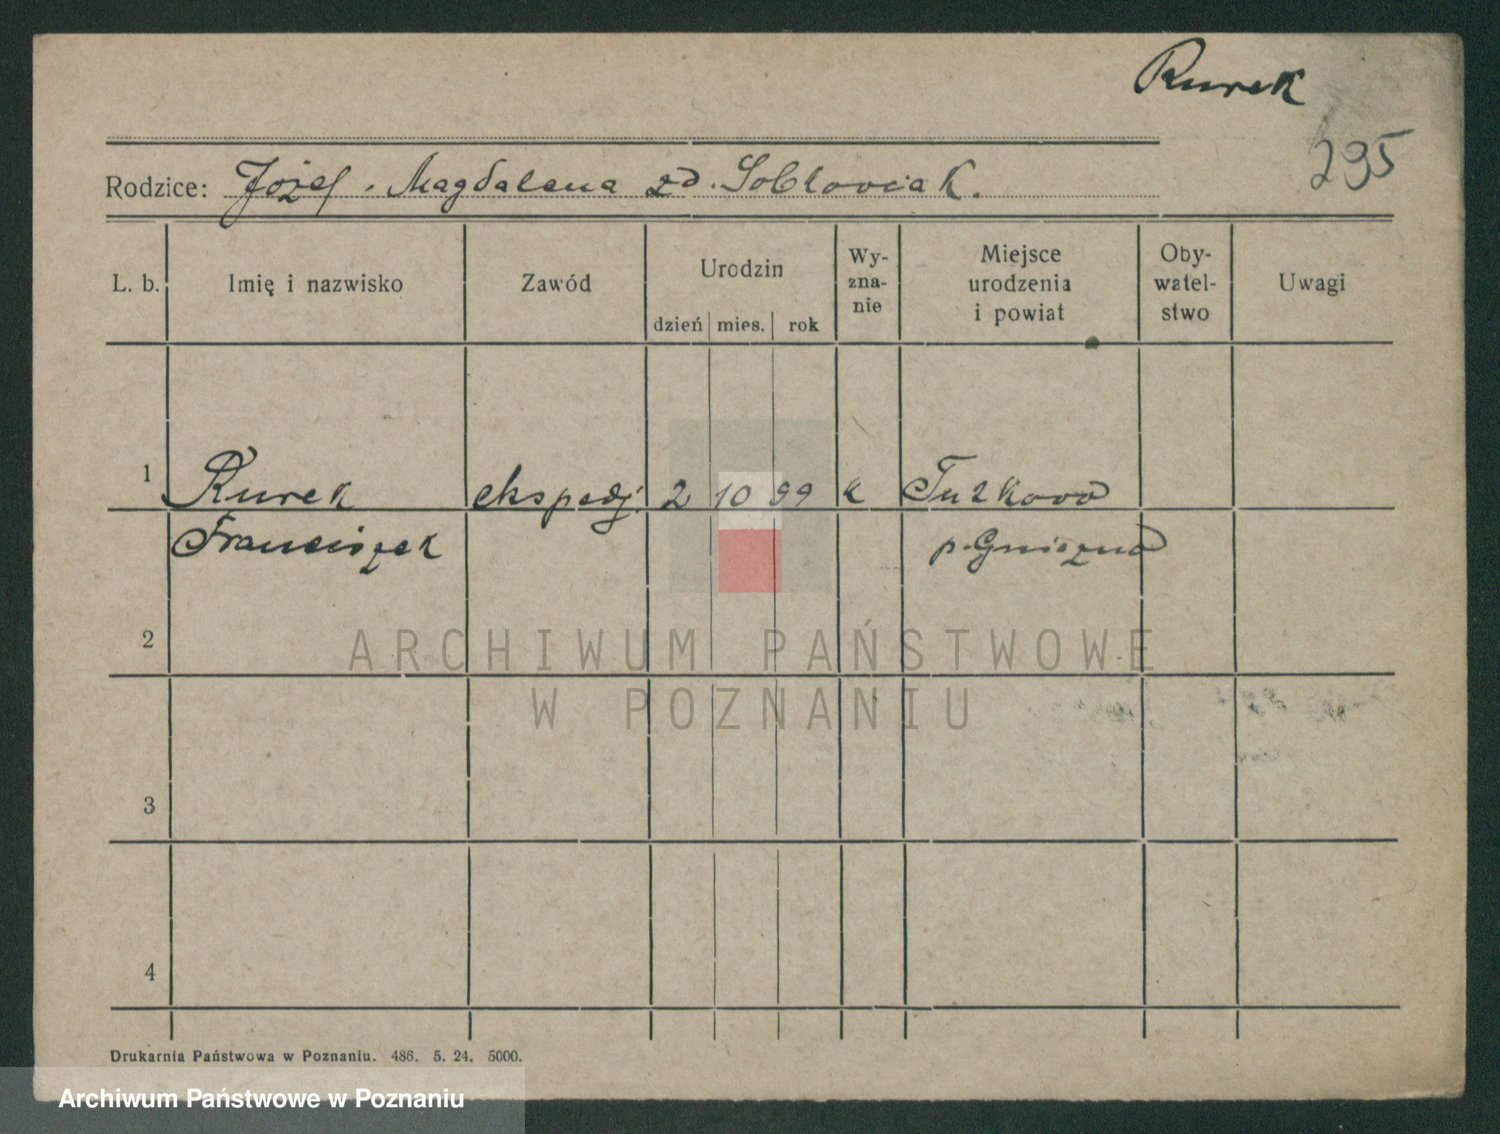 Rurek
295
Rodzice: Józef. Magdalena zd.
L. b. Imię i nazwisko Zawód Urodzin dzień mies. rok Wy-zna-nie Miejsce urodzenia i powiat Oby-watel-stwo Uwagi
1 Rurek ekspedj. 2 10 99 k
Franciszek p. Gniezno
2
ARCHIWUM PAŃSTWOWE
W POZNANIU
3
4
Drukarnia Państwowa w Poznaniu. 486. 5. 24. 5000.
Archiwum Państwowe w Poznaniu